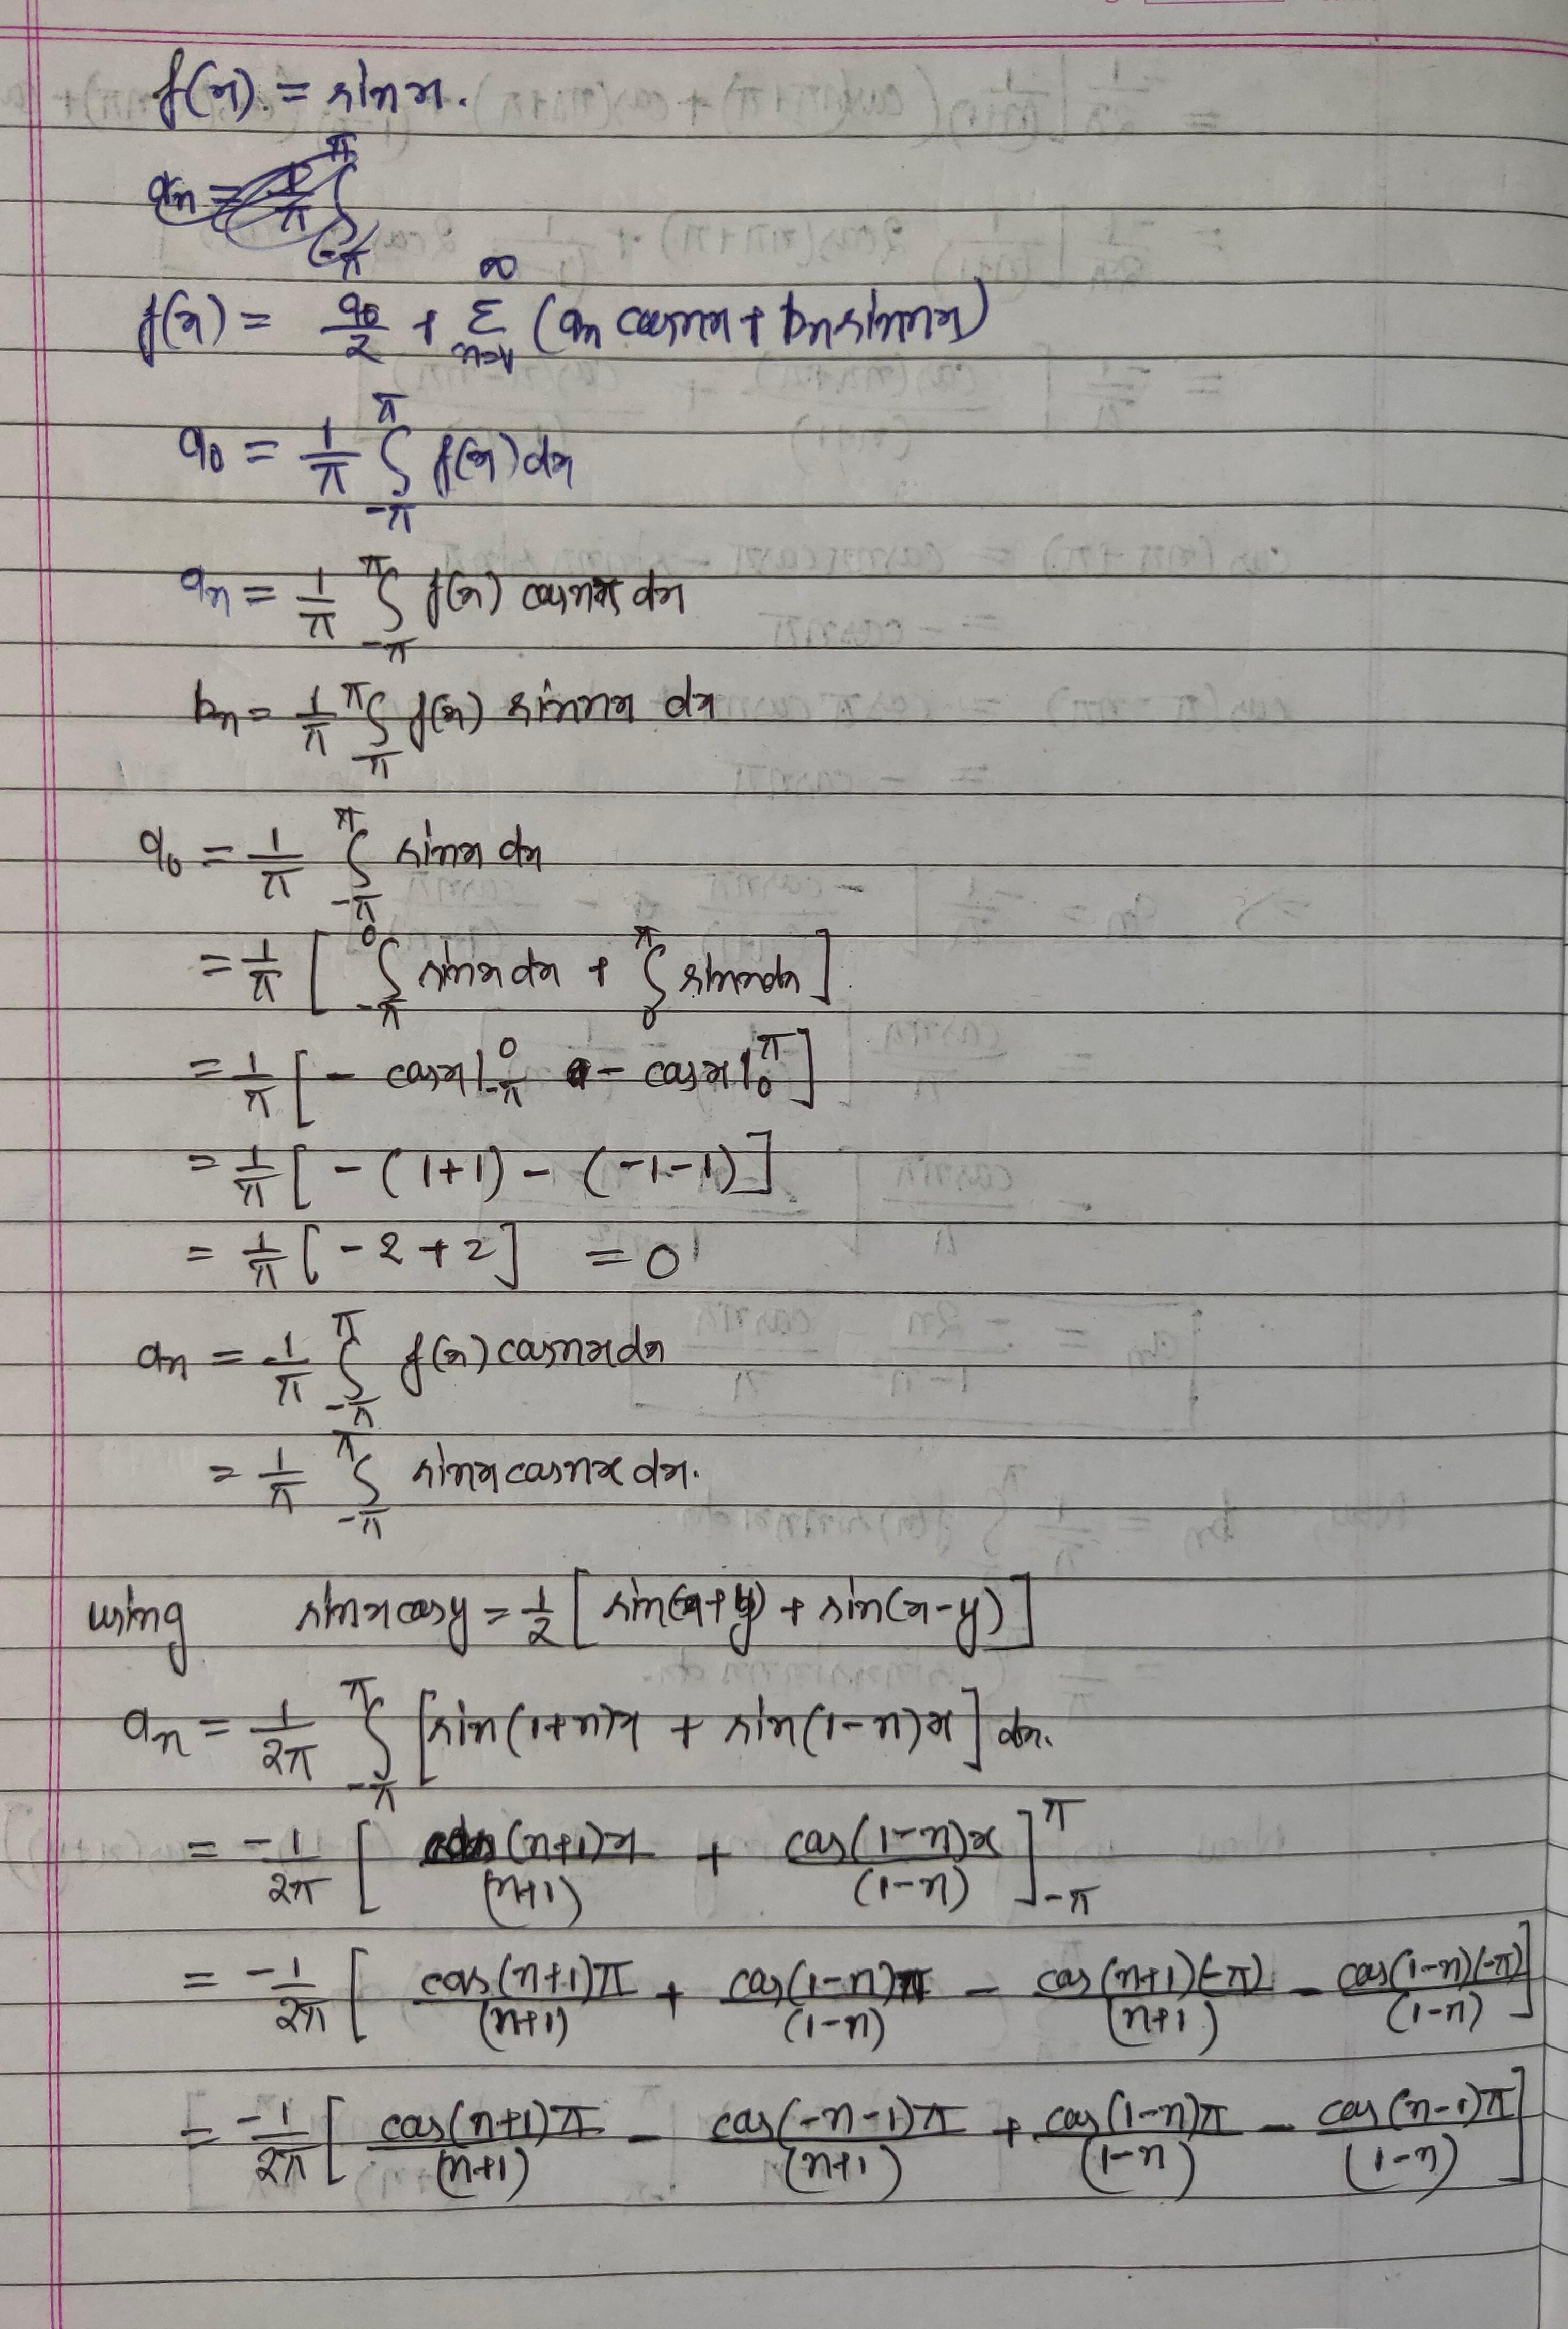 f(x) = sinx.
an = 1/π ∫_{-π}^{π}
f(x) = a0/2 + Σ_{n=1}^{∞} (an cosnx + bn sinnx)
a0 = 1/π ∫_{-π}^{π} f(x) dx
an = 1/π ∫_{-π}^{π} f(x) cosnx dx
bn = 1/π ∫_{-π}^{π} f(x) sinnx dx
a0 = 1/π ∫_{-π}^{π} sinx dx
= 1/π [ ∫_{-π}^{0} sinx dx + ∫_{0}^{π} sinx dx ]
= 1/π [ - cosx|_{-π}^{0} - cosx|_{0}^{π} ]
= 1/π [ - (1+1) - (-1-1) ]
= 1/π [ -2+2 ] = 0
an = 1/π ∫_{-π}^{π} f(x) cosnx dx
= 1/π ∫_{-π}^{π} sinx cosnx dx.
using sinx cosy = 1/2 [ sin(x+y) + sin(x-y) ]
an = 1/2π ∫_{-π}^{π} [ sin(1+n)x + sin(1-n)x ] dx.
= -1/2π [ cos(n+1)x/(n+1) + cos(1-n)x/(1-n) ]_{-π}^{π}
= -1/2π [ cos(n+1)π/(n+1) + cos(1-n)π/(1-n) - cos(n+1)(-π)/(n+1) - cos(1-n)(-π)/(1-n) ]
= -1/2π [ cos(n+1)π/(n+1) - cos(-n-1)π/(n+1) + cos(1-n)π/(1-n) - cos(n-1)π/(1-n) ]